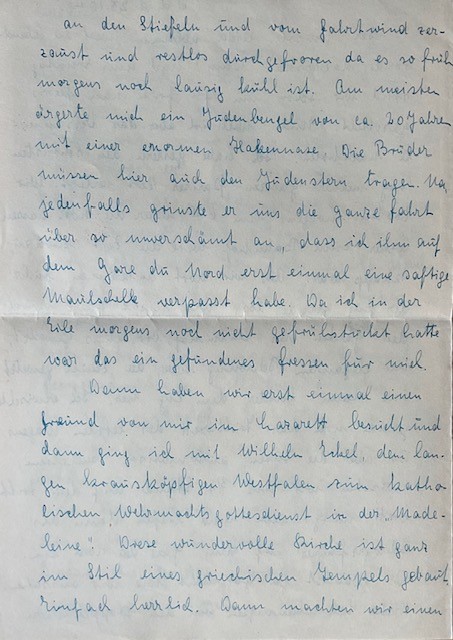 an den Stiefeln und vom Fahrtwind zer-
zaust und restlos durchgefroren da es so früh
morgens noch lausig kühl ist. Am meisten
ärgerte mich ein Judenbengel von ca. 20 Jahren
mit einer enormen Hakennase. Die Brüder
müssen hier auch den Judenstern tragen. Na
jedenfalls grinste er uns die ganze Fahrt
über so unverschämt an, dass ich ihm auf
dem Gare du Nord erst einmal eine saftige
Maulschelle verpasst habe. Da ich in der
Eile morgens noch nicht gefrühstückt hatte
war das ein gefundenes Fressen für mich.
Dann haben wir erst einmal einen
Freund von mir im Lazarett besucht und
dann ging ich mit Wilhelm Eckel, dem lan-
gen krausköpfigen Westfalen zum katho
lischen Wehrmachtsgottesdienst in der „Made-
leine". Diese wundervolle Kirche ist ganz
im Stil eines griechischen Tempels gebaut
Einfach herrlich. Dann machten wir einen